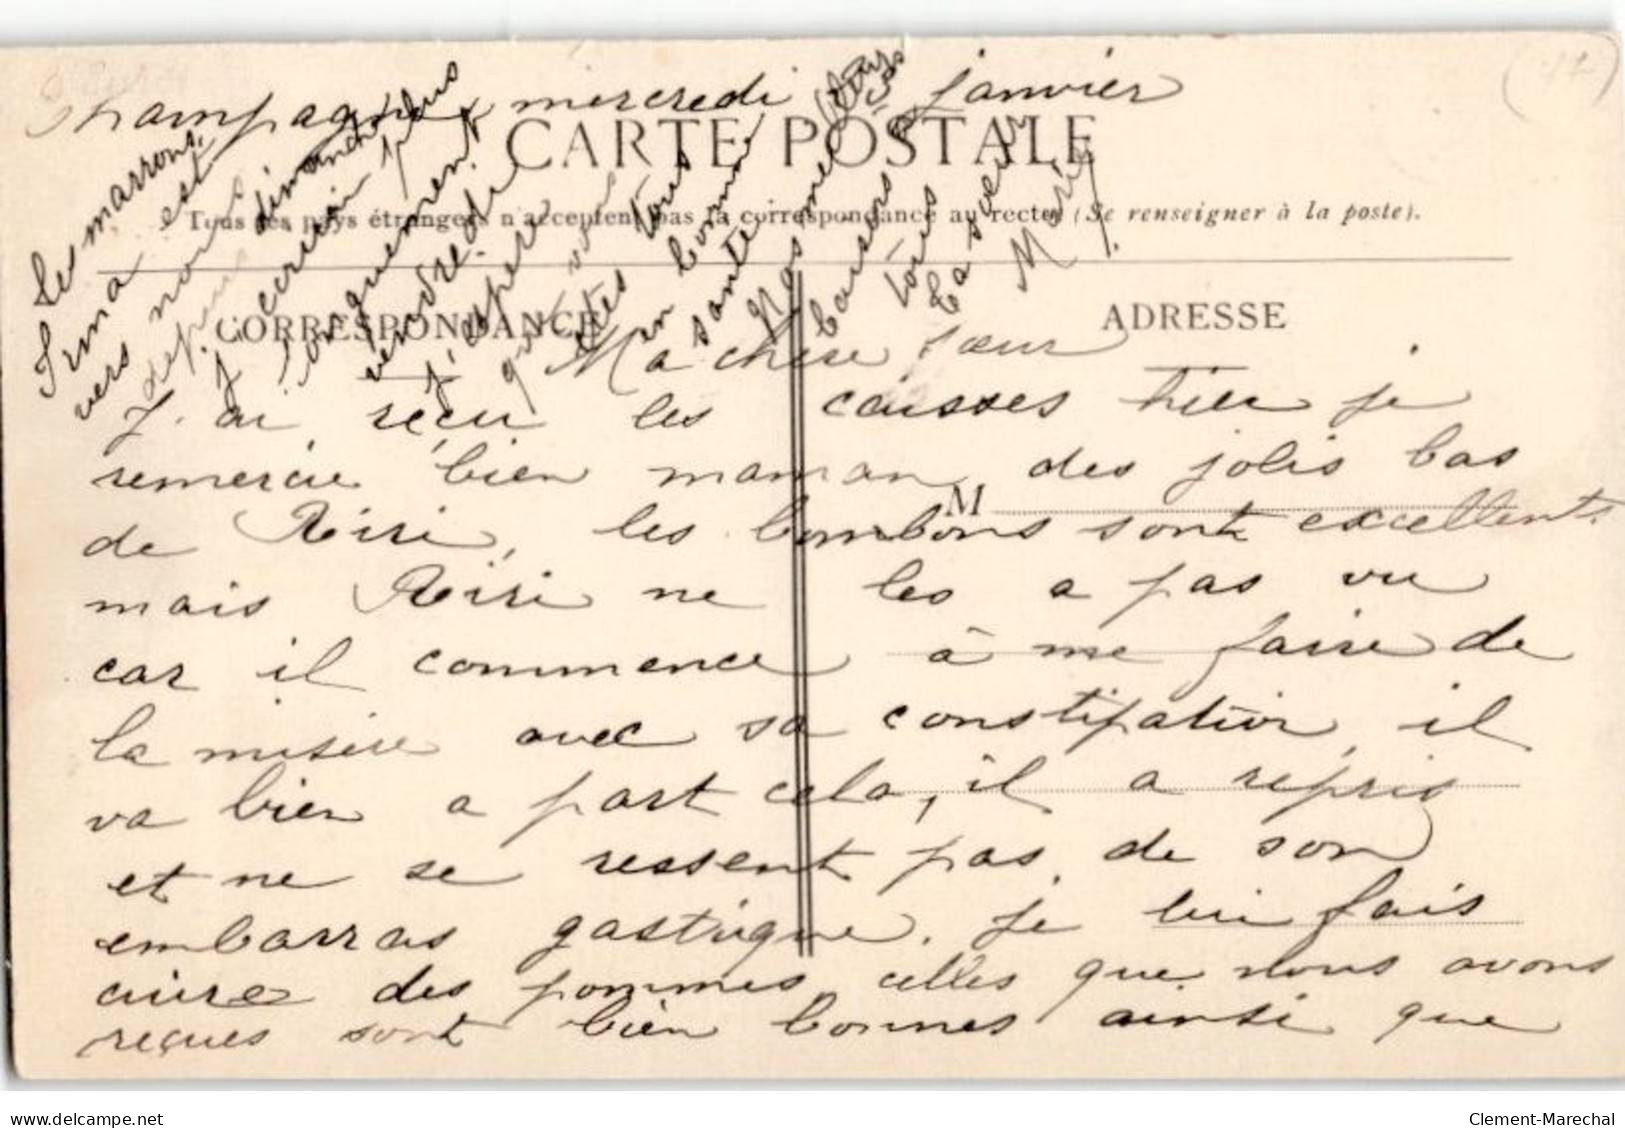 Champagnole mercredi 5 janvier
CARTE POSTALE
Tous les pays étrangers n'acceptent pas la correspondance au recto (Se renseigner à la poste).
CORRESPONDANCE
ADRESSE
M
Ma chère sœur
J'ai reçu les caisses hier je
remercie bien maman des jolis bas
de Riri, les bombons sont excellents
mais Riri ne les a pas vu
car il commence à me faire de
la misère avec sa constipation, il
va bien a part cela, il a repris
et ne se ressent pas de son
embarras gastrique. Je lui fais
cuire des pommes celles que nous avons
reçues sont bien bonnes ainsi que
les marrons.
Irma est
vers nous
depuis dimanche
j'écrirai plus
longuement
vendredi.
J'espère
que vous
êtes tous
en bonne
santé
Nos meilleurs
baisers
à tous
Ta sœur
Marie
(12)
delcampe.net
Clement-Marechal